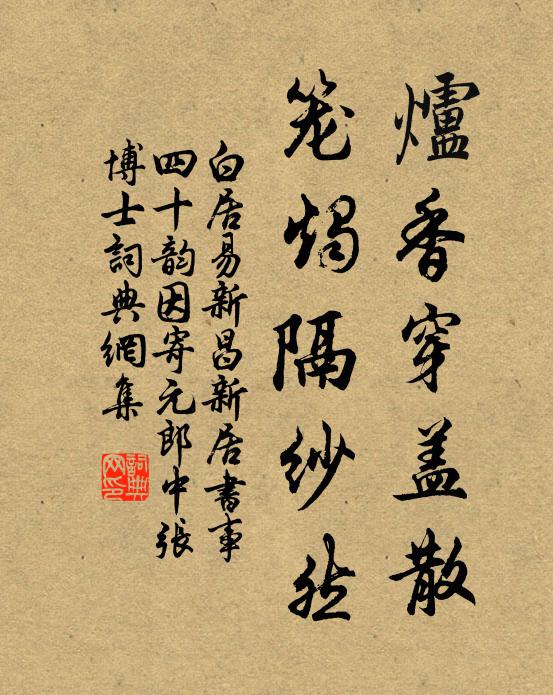 爐香穿盖散
笼燭隔紗然
白居易新昌新居書事
四十韵因寄元郎中張
博士詞典網集
詞典
网印